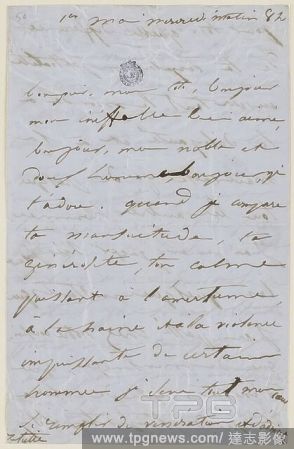 1er mai mercredi matin 8 h
bonjour, mon bonjour
mon ineffable bien aimé,
bonjour, mon noble et
doux homme, bonjour, je
t'adore. quand je compare
ta mansuétude, ta
générosité, ton calme
puissant à l'amertume,
à la haine et à la violence
impuissante de certains
hommes je sens tout mon cœur
se remplir de vénération et d'
TPG
www.tpgnews.com / 達志影像